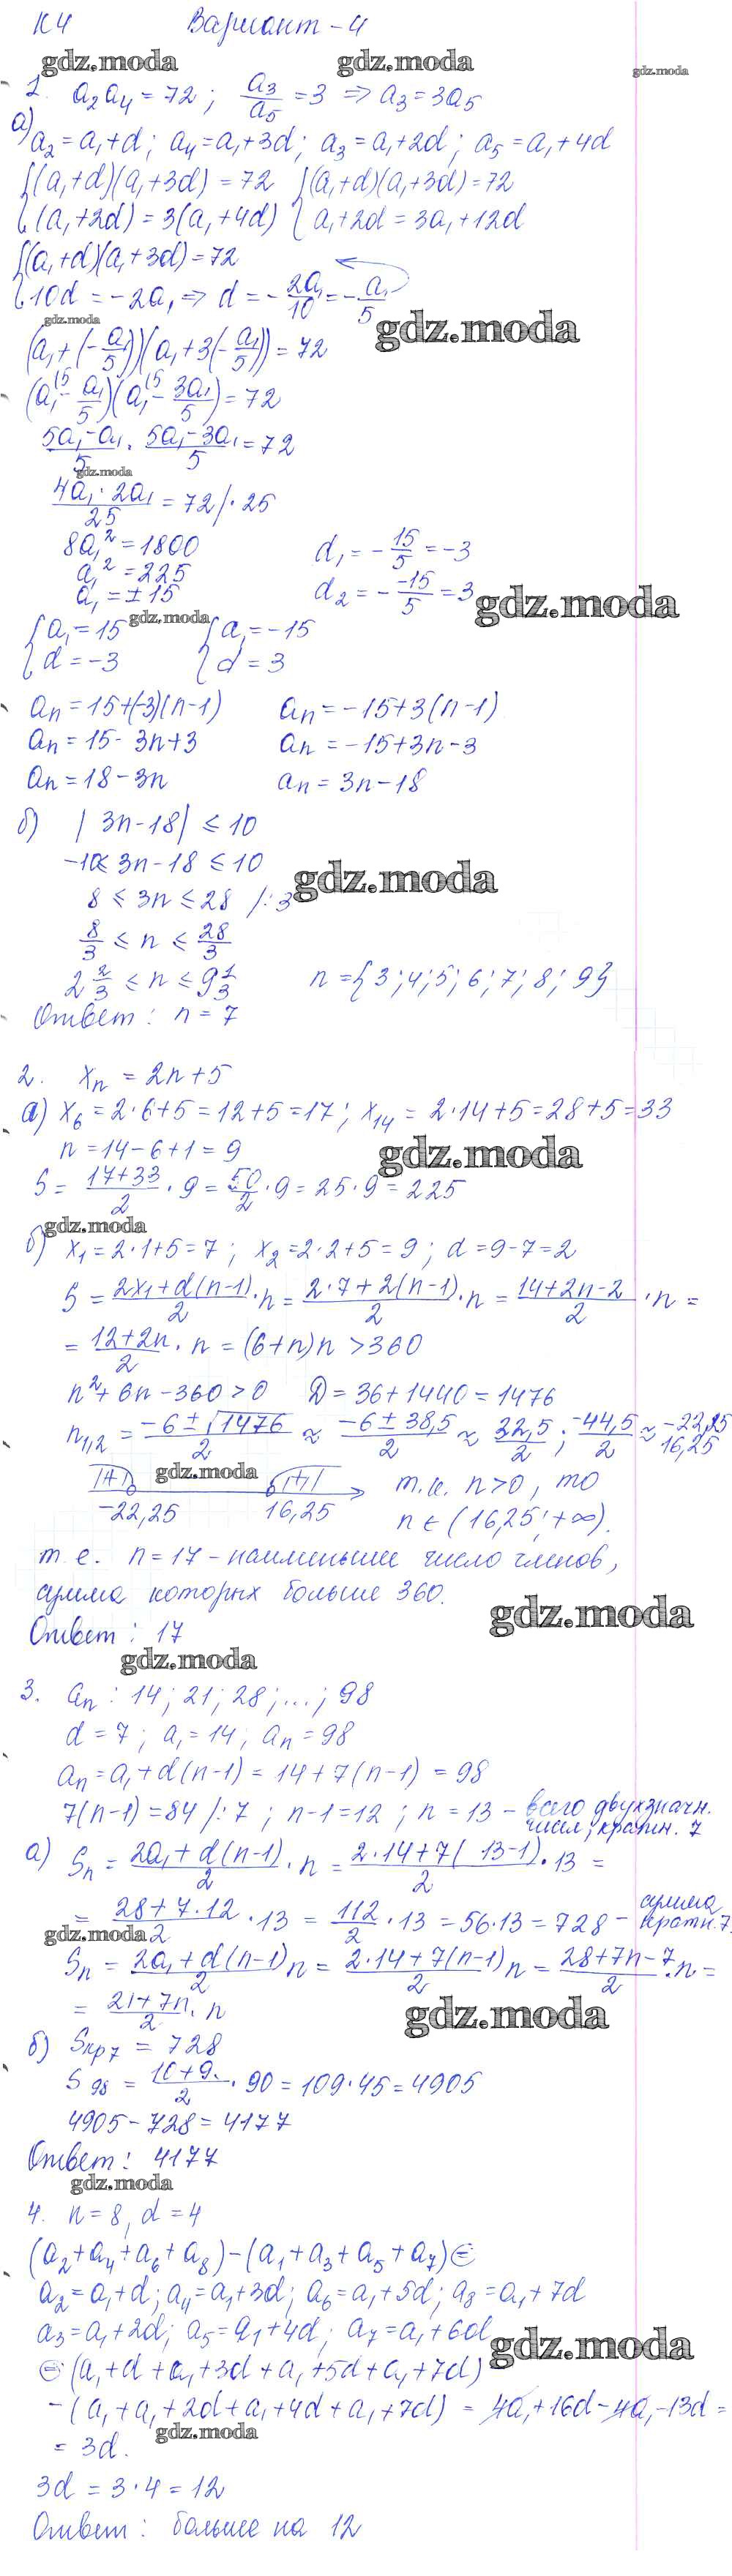 К4 Вариант-4
gdz.moda gdz.moda gdz.moda
1. a₂a₄=72; a₃/a₅=3 ⇒ a₃=3a₅
а) a₂=a₁+d; a₄=a₁+3d; a₃=a₁+2d; a₅=a₁+4d
{(a₁+d)(a₁+3d)=72 {(a₁+d)(a₁+3d)=72
{(a₁+2d)=3(a₁+4d) {a₁+2d=3a₁+12d
{(a₁+d)(a₁+3d)=72
{10d=-2a₁ ⇒ d=-2a₁/10=-a₁/5
gdz.moda gdz.moda
(a₁+(-a₁/5))(a₁+3(-a₁/5))=72
(a₁⁽⁵-a₁/5)(a₁⁽⁵-3a₁/5)=72
(5a₁-a₁)/5·(5a₁-3a₁)/5=72
gdz.moda
(4a₁·2a₁)/25=72/·25
8a₁²=1800 d₁=-15/5=-3
a₁²=225
a₁=±15 d₂=-(-15)/5=3
gdz.moda gdz.moda
{a₁=15 {a₁=-15
{d=-3 {d=3
aₙ=15+(-3)(n-1) aₙ=-15+3(n-1)
aₙ=15-3n+3 aₙ=-15+3n-3
aₙ=18-3n aₙ=3n-18
б) |3n-18|≤10
-10≤3n-18≤10
gdz.moda
8≤3n≤28 /:3
8/3≤n≤28/3
2 2/3≤n≤9 1/3 n={3;4;5;6;7;8;9}
Ответ: n=7
2. xₙ=2n+5
а) x₆=2·6+5=12+5=17; x₁₄=2·14+5=28+5=33
n=14-6+1=9
gdz.moda
S=(17+33)/2·9=50/2·9=25·9=225
gdz.moda
б) x₁=2·1+5=7; x₂=2·2+5=9; d=9-7=2
S=(2x₁+d(n-1))/2·n=(2·7+2(n-1))/2·n=(14+2n-2)/2·n=
=(12+2n)/2·n=(6+n)n>360
n²+6n-360>0 D=36+1440=1476
n₁,₂=(-6±√1476)/2≈(-6±38,5)/2≈32,5/2; -44,5/2≈-22,25 16,25
gdz.moda
/+/ /+/ т.к. n>0, то
-22,25 16,25 n∈(16,25;+∞).
т.е. n=17-наименьшее число членов,
сумма которых больше 360.
gdz.moda
Ответ: 17
gdz.moda
3. aₙ: 14; 21; 28; ...; 98
d=7; a₁=14; aₙ=98
aₙ=a₁+d(n-1)=14+7(n-1)=98
7(n-1)=84/:7; n-1=12; n=13-всего двухзначн.
чисел, кратн. 7
а) Sₙ=(2a₁+d(n-1))/2·n=(2·14+7(13-1))/2·13=
=(28+7·12)/2·13=112/2·13=56·13=728-сумма
кратн. 7.
gdz.moda
Sₙ=(2a₁+d(n-1))/2 n=(2·14+7(n-1))/2 n=(28+7n-7)/2·n=
=(21+7n)/2·n
gdz.moda
б) Sкр7=728
S₉₈=(10+9.)/2·90=109·45=4905
4905-728=4177
Ответ: 4177
gdz.moda
4. n=8, d=4
(a₂+a₄+a₆+a₈)-(a₁+a₃+a₅+a₇)⊜
a₂=a₁+d; a₄=a₁+3d; a₆=a₁+5d; a₈=a₁+7d
a₃=a₁+2d; a₅=a₁+4d; a₇=a₁+6d
gdz.moda
⊜(a₁+d+a₁+3d+a₁+5d+a₁+7d)
-(a₁+a₁+2d+a₁+4d+a₁+7d)=4a₁+16d-4a₁-13d=
gdz.moda
=3d.
3d=3·4=12
Ответ: больше на 12